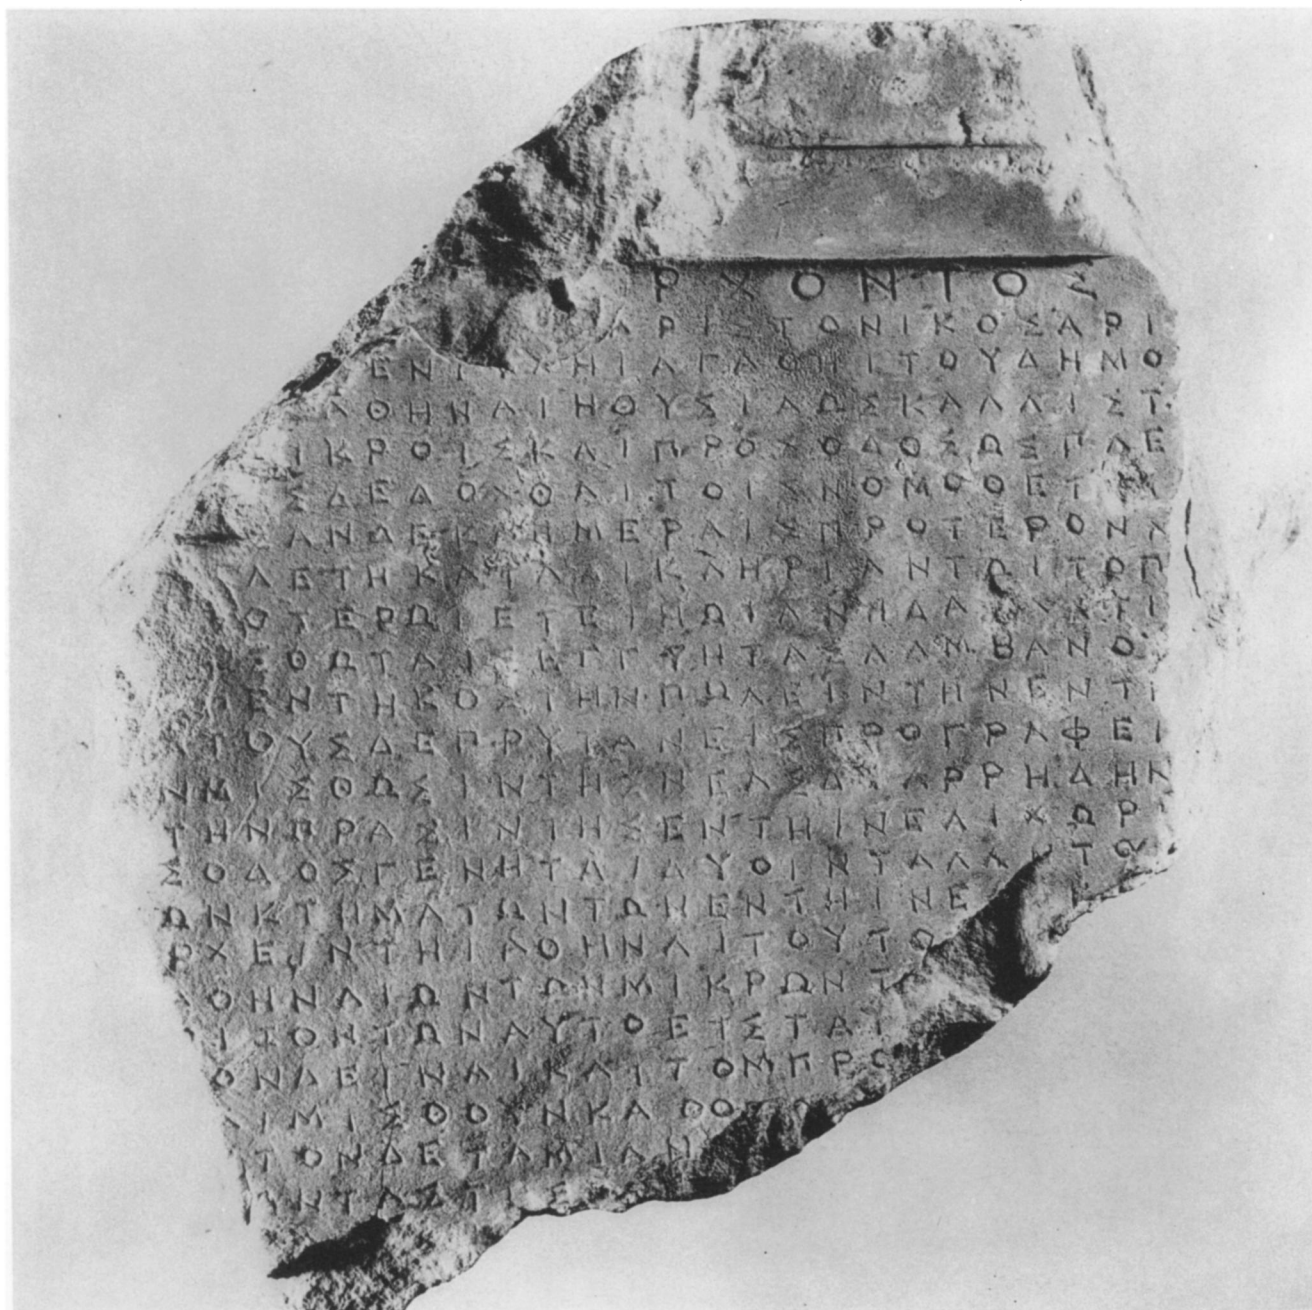 ΡΧΟΝΤΟΣ
ΑΡΙΣΤΟΝΙΚΟΣΑΡΙ
ΕΝΤΥΧΗΙΑΓΑΘΗΙΤΟΥΔΗΜΟ
ΑΘΗΝΑΙΗΘΥΣΙΑΩΣΚΑΛΛΙΣΤ
ΙΚΡΟΙΣΚΑΙΠΡΟΣΟΔΟΣΩΣΠΛΕ
ΣΔΕΔΟΧΘΑΙΤΟΙΣΝΟΜΟΘΕΤΑΙ
ΑΝΔΕΚΑΗΜΕΡΑΙΣΠΡΟΤΕΡΟΝΑ
ΛΕΤΗΚΑΤΑΔΙΚΛΗΡΙΑΝΤΩΙΤΟΠ
ΟΤΕΡΩΙΕΤΕΙΗΩΙΑΝΗΔΑ
ΣΘΩΤΑΙΕΓΓΥΗΤΑΣΛΑΜΒΑΝΟ
ΕΝΤΗΚΟΣΤΗΝΠΩΛΕΙΝΤΗΝΕΝΤ
ΤΟΥΣΔΕΠΡΥΤΑΝΕΙΣΠΡΟΓΡΑΦΕΙ
ΝΜΙΣΘΩΣΙΝΤΗΣΝΕΑΣΔΙΑΡΡΗΔΗΝ
ΤΗΝΠΡΑΣΙΝΤΗΣΕΝΤΗΙΝΕΑΙΧΩΡ
ΣΟΔΟΣΓΕΝΗΤΑΙΔΥΟΙΝΤΑΛΑΝΤΩ
ΩΝΚΤΗΜΑΤΩΝΤΩΝΕΝΤΗΙΝΕ
ΡΧΕΙΝΤΗΙΑΘΗΝΑΙΤΟΥΤΩ
ΑΘΗΝΑΙΩΝΤΩΝΜΙΚΡΩΝ
ΙΤΟΝΤΩΝΑΥΤΟΕΤΣΤΑΙ
ΟΝΔΕΙΓΝΑΙΚΑΙΤΟΜΠΡΟ
ΑΙΜΙΣΘΟΥΝΚΑΘΟ
ΤΟΝΔΕΤΑΜΙΑΝ
ΝΤΑΣΤΙΕ